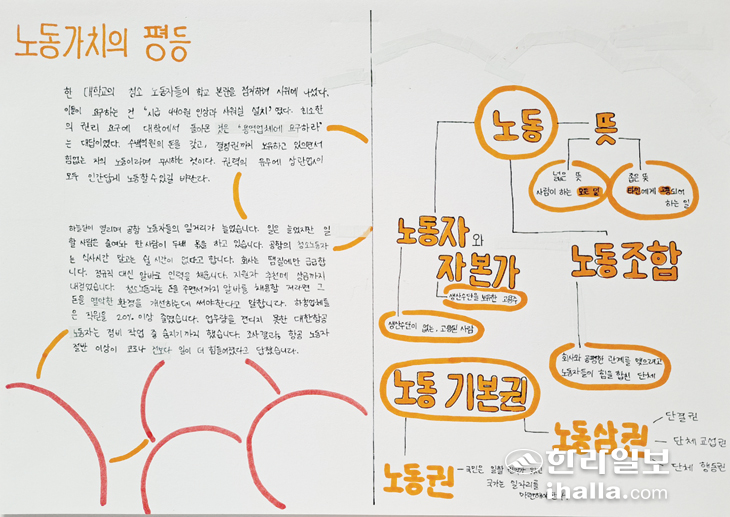 노동가치의 평등
한 대학교의 청소 노동자들이 학교 본관을 점거하며 시위에 나섰다.
이들이 요구하는 건 "시급 440원 인상과 샤워실 설치"였다. 최소한
의 권리 요구에 대학에서 돌아온 것은 "용역업체에 요구하라"
는 대답이었다. 수백억원의 돈을 갖고, 결정권까지 보유하고 있으면서
힘없는 자의 노동이라며 무시하는 것이다. 권력의 유무에 상관없이
모두 인간답게 노동할 수 있길 바란다.
하늘길이 열리며 공항 노동자들의 일거리가 늘었습니다. 일은 늘었지만 일
할 사람은 줄어들어 한 사람이 두세 몫을 하고 있습니다. 공항의 청소노동자
는 식사시간 말고는 쉴 시간이 없다고 합니다. 회사는 땜질에만 급급합
니다. 정규직 대신 알바로 인력을 채웁니다. 지원자 추천에 상금까지
내걸었습니다. 청소노동자는 돈을 주면서까지 알바를 채용할 거라면 그
돈을 열악한 환경을 개선하는데 써야한다고 말합니다. 하청업체들
은 직원을 20% 이상 줄였습니다. 업무량을 견디지 못한 대한항공
노동자는 정비 작업 중 숨지기까지 했습니다. 조사결과, 항공 노동자
절반 이상이 코로나 전보다 일이 더 힘들어졌다고 답했습니다.
노동 뜻
넓은 뜻
사람이 하는 모든 일
좁은 뜻
타인에게 고용되어
하는 일
노동자와
자본가
생산수단을 보유한 고용주
생산수단이 없는, 고용된 사람
노동조합
회사와 공평한 관계를 맺으려고
노동자들이 힘을 합친 단체
노동 기본권
노동삼권
단결권
단체 교섭권
단체 행동권
노동권
국민은 일할 권리가 있고
국가는 일자리를
마련해야
한라일보
ihalla.com